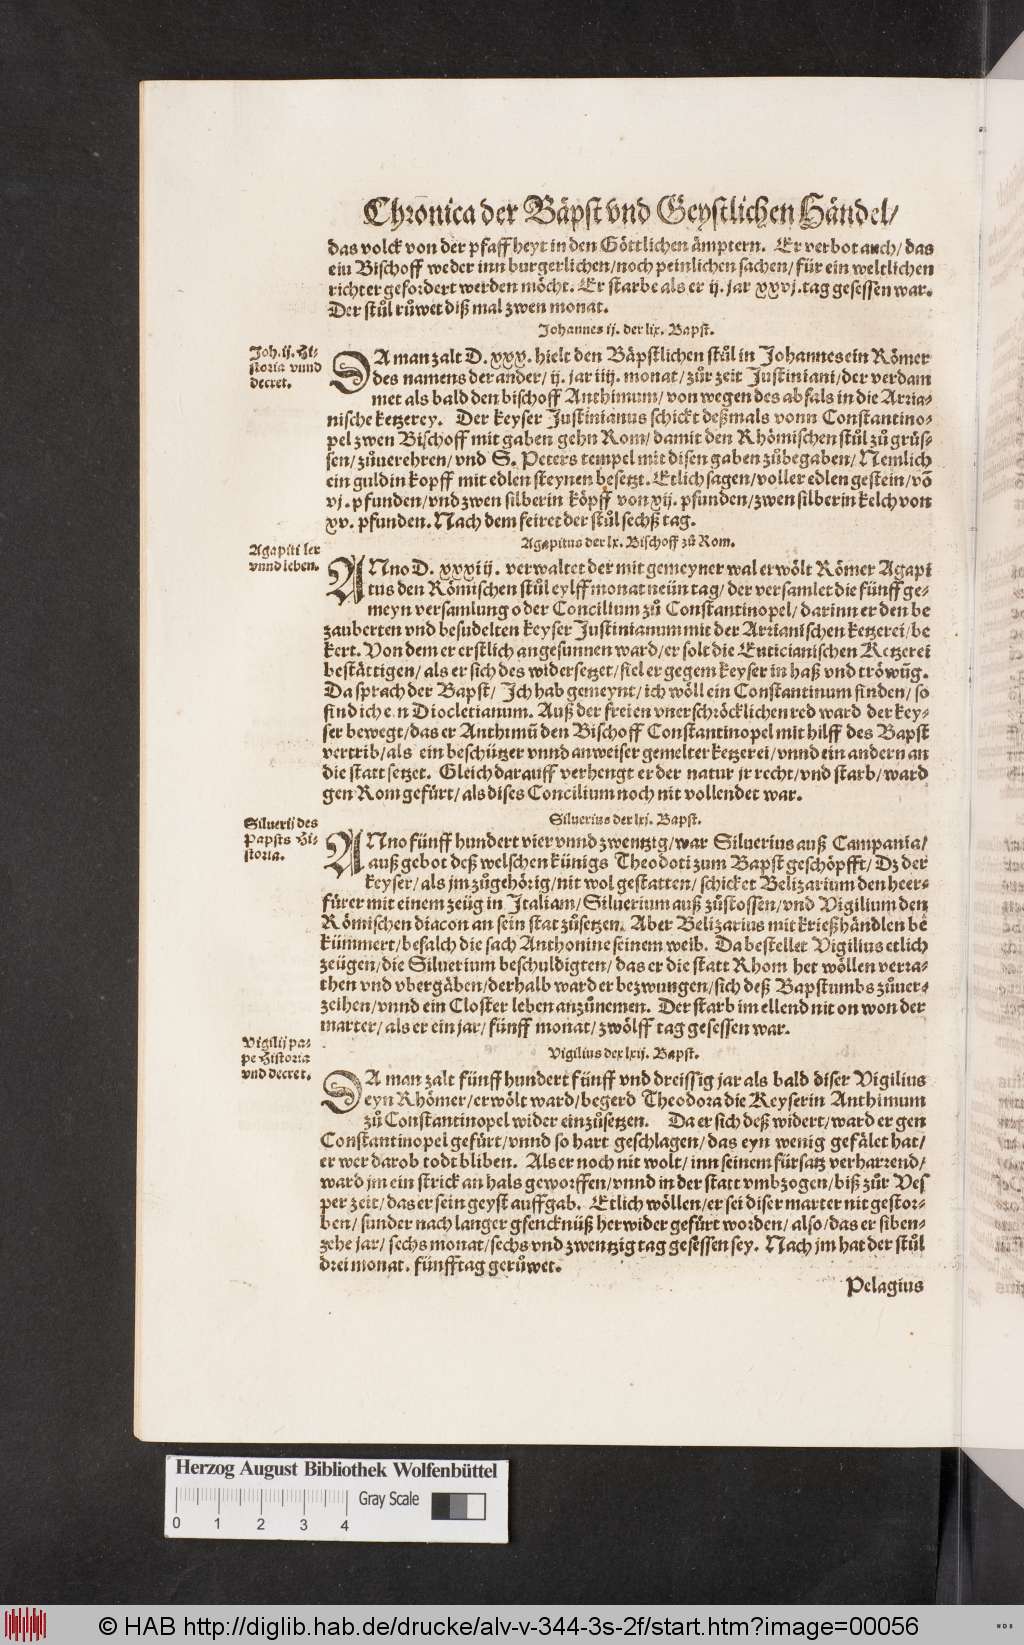 Chronica der Bäpst vnd Geystlichen Händel/
das volck von der pfaffheyt in den Göttlichen ämptern. Er verbot auch/ das
ein Bischoff weder inn burgerlichen/noch peinlichen sachen/ für ein weltlichen
richter gefordert werden möcht. Er starbe als er ij. jar xxvj. tag gesessen war.
Der stůl růwet diß mal zwen monat.
Johannes ij. der lix. Bapst.
Joh. ij. Hi-
storia vnnd
decret.
DA man zalt D. xxx. hielt den Bäpstlichen stůl in Johannes ein Römer
des namens der ander/ ij. jar iiij. monat/ zůr zeit Justiniani/ der verdam
met als bald den bischoff Anthimum/ von wegen des abfals in die Arria-
nische ketzerey. Der keyser Justinianus schickt deßmals vonn Constantino-
pel zwen Bischoff mit gaben gehn Rom/ damit den Rhömischen stůl zů grüs-
sen/ zůuerehren/ vnd S. Peters tempel mit disen gaben zůbegaben/ Nemlich
ein guldin kopff mit edlen steynen besetzt. Etlich sagen/ voller edlen gestein/ võ
vj. pfunden/ vnd zwen silberin köpff von xij. pfunden/ zwen silberin kelch von
xv. pfunden. Nach dem feiret der stůl sechß tag.
Agapitus der lx. Bischoff zů Rom.
Agapiti ler
vnnd leben.
ANno D. xxxiij. verwaltet der mit gemeyner wal erwölt Römer Agapi
tus den Römischen stůl eylff monat neün tag/ der versamlet die fünff ge-
meyn versamlung oder Concilium zů Constantinopel/ darinn er den be
zauberten vnd besudelten keyser Justinianum mit der Arrianischen ketzerei/ be
kert. Von dem er erstlich angesunnen ward/ er solt die Euticianischen Ketzerei
bestättigen/ als er sich des widersetzet/ fiel er gegem keyser in haß vnd tröwũg.
Da sprach der Bapst/ Ich hab gemeynt/ ich wöll ein Constantinum finden/ so
find ich e n Diocletianum. Auß der freien vnerschröcklichen red ward der key-
ser bewegt/ das er Anthimũ den Bischoff Constantinopel mit hilff des Bapst
vertrib/ als ein beschützer vnnd anweiser gemelter ketzerei/ vnnd ein andern an
die statt setzet. Gleich darauff verhengt er der natur jr recht/ vnd starb/ ward
gen Rom gefürt/ als dises Concilium noch nit vollendet war.
Siluerius der lxj. Bapst.
Siluerij des
Papsts Hi-
storia.
ANno fünff hundert vier vnnd zwentzig/ war Siluerius auß Campania/
auß gebot deß welschen künigs Theodoti zum Bapst geschöpfft/ Dz der
keyser/ als jm zůgehörig/ nit wol gestatten/ schicket Belizarium den heer-
fürer mit einem zeüg in Italiam/ Siluerium auß zůstossen/ vnd Vigilium den
Römischen diacon an sein stat zůsetzen. Aber Belizarius mit krießhändlen be
kümmert/ befalch die sach Anthonine seinem weib. Da bestellet Vigilius etlich
zeügen/ die Siluerium beschuldigten/ das er die statt Rhom het wöllen verra-
then vnd vbergäben/ derhalb ward er bezwungen/ sich deß Bapstumbs zůuer-
zeihen/ vnnd ein Closter leben anzůnemen. Der starb im ellend nit on won der
marter/ als er ein jar/ fünff monat/ zwölff tag gesessen war.
Vigilij pa-
pe Historia
vnd decret.
Vigilius der lxij. Bapst.
DA man zalt fünff hundert fünff vnd dreissig jar als bald diser Vigilius
eyn Rhömer/ erwölt ward/ begerd Theodora die Keyserin Anthimum
zů Constantinopel wider einzůsetzen. Da er sich deß widert/ ward er gen
Constantinopel gefürt/ vnnd so hart geschlagen/ das eyn wenig gefälet hat/
er wer darob todt bliben. Als er noch nit wolt/ inn seinem fürsatz verharrend/
ward jm ein strick an hals geworffen/ vnnd in der statt vmbzogen/ biß zůr Ves
per zeit/ das er sein geyst auffgab. Etlich wöllen/ er sei diser marter nit gestor-
ben/ sunder nach langer gfencknüß herwider gefürt worden/ also/ das er siben-
zehe jar/ sechs monat/ sechs vnd zwentzig tag gesessen sey. Nach jm hat der stůl
drei monat. fünff tag gerůwet.
Pelagius
Herzog August Bibliothek Wolfenbüttel
Gray Scale
0 1 2 3 4
© HAB http://diglib.hab.de/drucke/alv-v-344-3s-2f/start.htm?image=00056